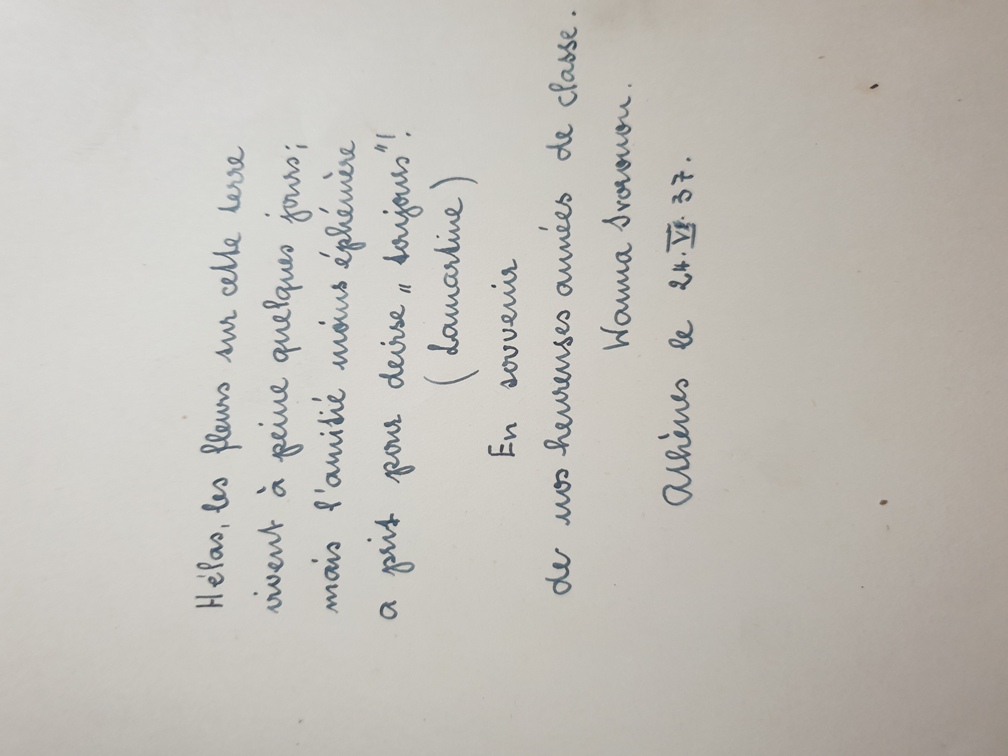 Hélas, les fleurs sur cette terre
vivent à peine quelques jours;
mais l'amitié moins éphémère
a prit pour deirse „ toujours"!
(Lamartine)
En souvenir
de nos heureuses années de classe.
Wanna Svoronou.
Athènes le 24.VI.37.